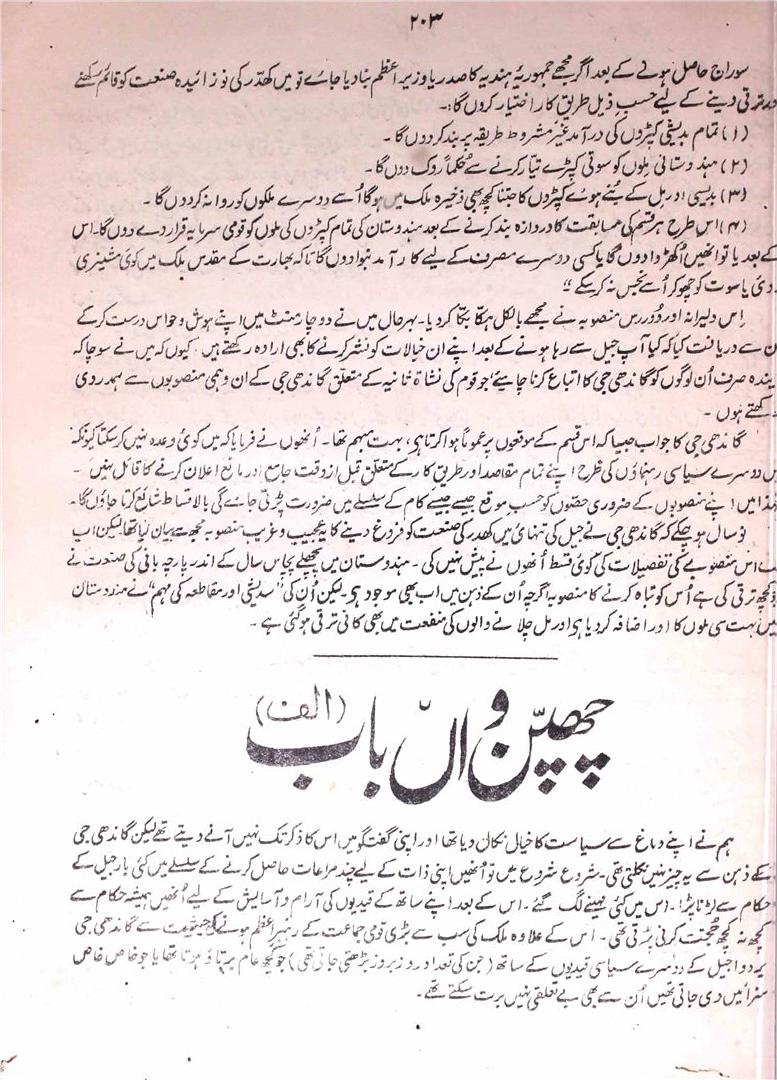 ۲۰۳
سوراج حاصل ہونے کے بعد اگر مجھے جمہوریۂ ہندیہ کا صدر یا وزیر اعظم بنا دیا جاے تو میں کھدّر کی نوزائیدہ صنعت کو قائم رکھنے
ور ترقی دینے کے لیے حسبِ ذیل طریق کار اختیار کروں گا:۔
(۱) تمام بدیشی کپڑوں کی درآمد غیر مشروط طریقہ پر بند کر دوں گا ۔
(۲) ہندوستانی ملوں کو سوتی کپڑے تیار کرنے سے حُکماً روک دوں گا ۔
(۳) بدیسی اور مل کے بُنے ہوے کپڑوں کا جتنا کچھ بھی ذخیرہ ملک میں ہوگا اُسے دوسرے ملکوں کو روانہ کر دوں گا ۔
(۴) اس طرح ہر قسم کی مسابقت کا دروازہ بند کرنے کے بعد ہندوستان کی تمام کپڑوں کی ملوں کو قومی سرمایہ قرار دے دوں گا۔ اس
کے بعد یا تو انھیں اُکھڑوا دوں گا یا کسی دوسرے مصرف کے لیے کارآمد بنوا دوں گا تاکہ بھارت کے مقدس ملک میں کوئی مشینری
روئی یا سوت کو چھو کر اُسے نجس نہ کر سکے“
اِس دلیرانہ اور دُوررس منصوبہ نے مجھے بالکل ہکّا بکّا کر دیا۔ بہرحال میں نے دو چار منٹ میں اپنے ہوش و حواس درست کرکے
ن سے دریافت کیا کہ کیا آپ جیل سے رہا ہونے کے بعد اپنے ان خیالات کو نشر کرنے کا بھی ارادہ رکھتے ہیں۔ کیوں کہ میں نے سوچا کہ
یندہ صرف اُن لوگوں کو گاندھی جی کا اتباع کرنا چاہیے جو قوم کی نشاۃ ثانیہ کے متعلق گاندھی جی کے ان وہمی منصوبوں سے ہمدردی
رکھتے ہوں ۔
گاندھی جی کا جواب جیسا کہ اس قسم کے موقعوں پر عموماً ہوا کرتا ہی، بہت مبہم تھا۔ اُنھوں نے فرمایا کہ میں کوئی وعدہ نہیں کر سکتا کیونکہ
یں دوسرے سیاسی رہنماؤں کی طرح اپنے تمام مقاصد اور طریق کار کے متعلق قبل از وقت جامع اور مانع اعلان کرنے کا قائل نہیں ۔
لہذا میں اپنے منصوبوں کے ضروری حصّوں کو حسب موقع جیسے جیسے کام کے سلسلے میں ضرورت پڑتی جاے گی بالاقساط شائع کرتا جاؤں گا۔
نو سال ہو چکے کہ گاندھی جی نے جیل کی تنہائی میں کھدر کی صنعت کو فروغ دینے کا یہ عجیب و غریب منصوبہ مجھ سے بیان کیا تھا لیکن اب
تک اس منصوبے کی تفصیلات کی کوئی قسط اُنھوں نے پیش نہیں کی ۔ ہندوستان میں پچھلے پچاس سال کے اندر پارچہ بافی کی صنعت نے
جو کچھ ترقی کی ہے اُس کو تباہ کرنے کا منصوبہ اگرچہ اُن کے ذہن میں اب بھی موجود ہی۔ لیکن اُن کی ”سدیشی اور مقاطعہ کی مہم“ نے ہندوستان
میں بہت سی ملوں کا اور اضافہ کر دیا ہی اور مل چلانے والوں کی منفعت میں بھی کافی ترقی ہوگئی ہے ۔
چھپّن واں باب (الف)
ہم نے اپنے دماغ سے سیاست کا خیال نکال دیا تھا اور اپنی گفتگو میں اس کا ذکر تک نہیں آنے دیتے تھے لیکن گاندھی جی
کے ذہن سے یہ چیز نہیں نکلتی تھی۔ شروع شروع میں تو اُنھیں اپنی ذات کے لیے چند مراعات حاصل کرنے کے سلسلے میں کئی بار جیل کے
حکام سے لڑنا پڑا۔ اس میں کئی مہینے لگ گئے۔ اس کے بعد اپنے ساتھ کے قیدیوں کی آرام و آسایش کے لیے اُنھیں ہمیشہ حکام سے
کچھ نہ کچھ حُجت کرنی پڑتی تھی۔ اس کے علاوہ ملک کی سب سے بڑی قومی جماعت کے رہبرِ اعظم ہونے کی حیثیت سے گاندھی جی
یرودا جیل کے دوسرے سیاسی قیدیوں کے ساتھ (جن کی تعداد روز بروز بڑھتی جاتی تھی) جو کچھ عام برتاؤ ہوتا تھا یا جو خاص خاص
سزائیں دی جاتی تھیں اُن سے بھی بے تعلقی نہیں برت سکتے تھے۔